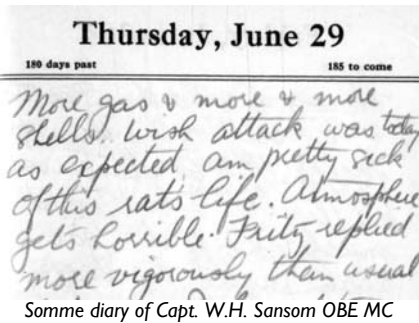 Thursday, June 29
180 days past 185 to come
More gas & more & more
shells. Wish attack was today
as expected. am pretty sick
of this rat's life. Atmosphere
gets horrible. Fritz replied
more vigorously than usual
Somme diary of Capt. W.H. Sansom OBE MC